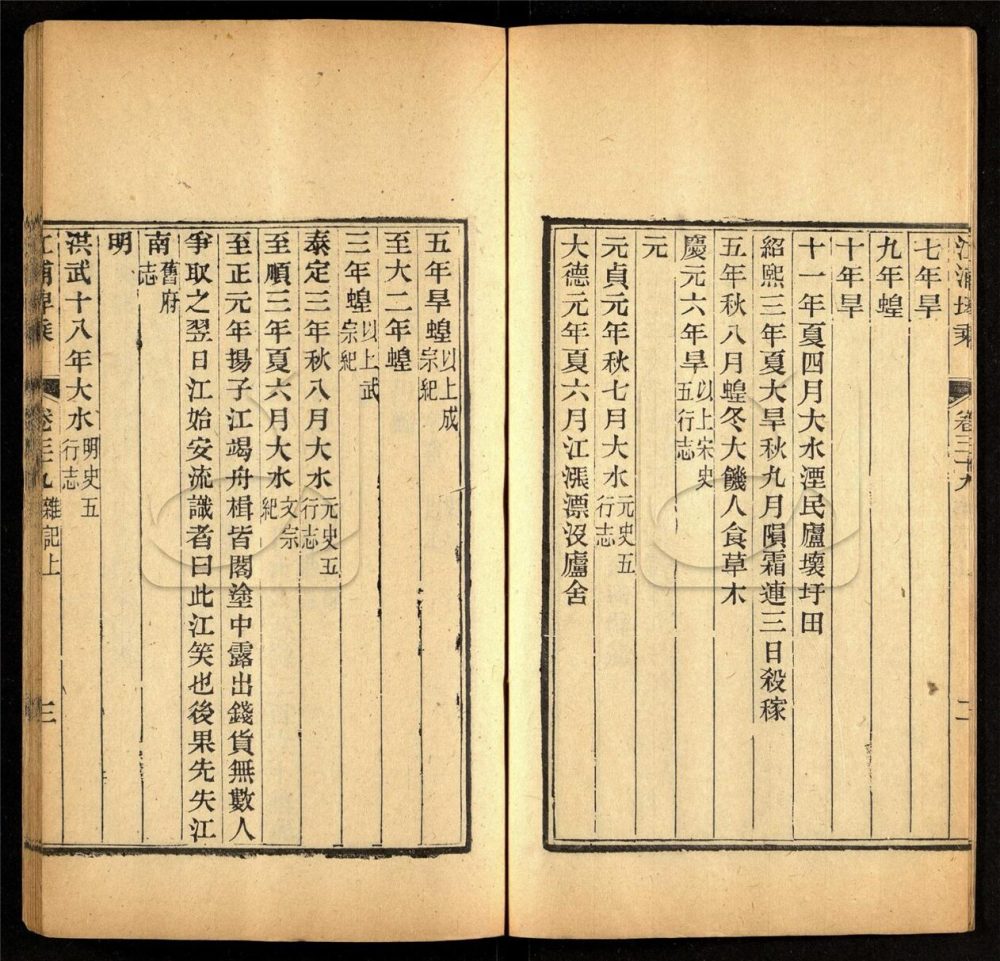 江浦埤乘 卷三十九 二
七年旱
九年蝗
十年旱
十一年夏四月大水湮民廬壞圩田
紹熙三年夏大旱秋九月隕霜連三日殺稼
五年秋八月蝗冬大饑人食草木
慶元六年旱以上宋史五行志
元
元貞元年秋七月大水元史五行志
大德元年夏六月江漲漂沒廬舍
五年旱蝗以上成宗紀
至大二年蝗
三年蝗以上武宗紀
泰定三年秋八月大水元史五行志
至順三年夏六月大水文宗紀
至正元年揚子江竭舟楫皆閣塗中露出錢貨無數人
爭取之翌日江始安流識者曰此江笑也後果先失江
南舊府志
明
洪武十八年大水明史五行志
江浦埤乘 卷三十九 雜記上 三